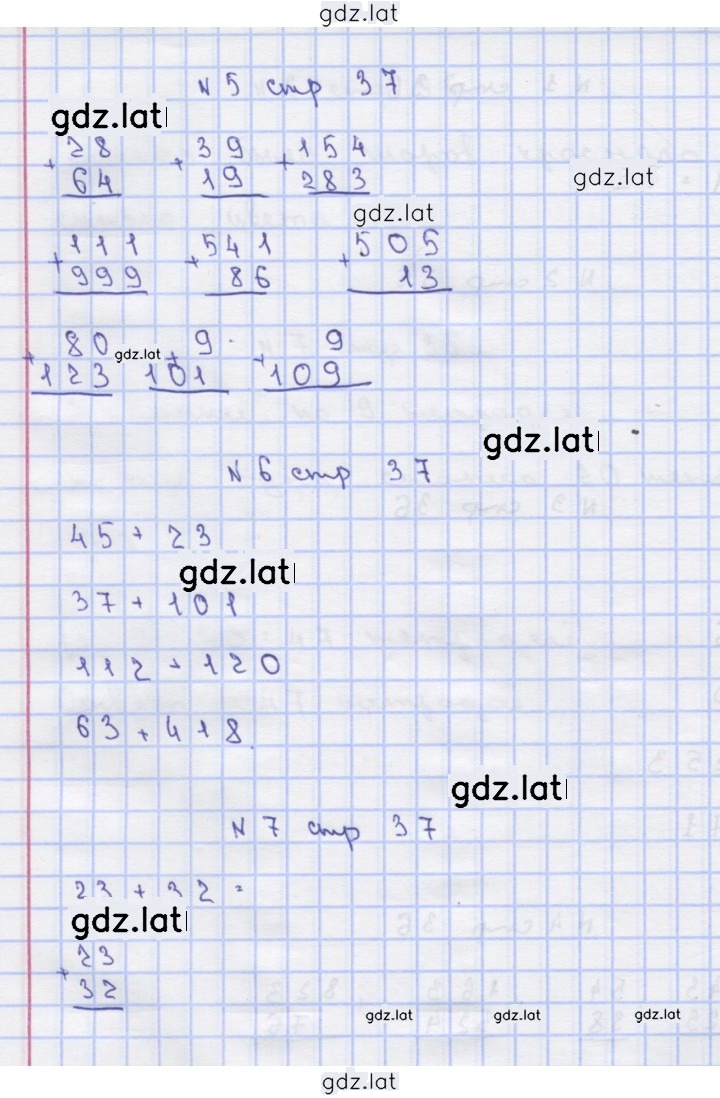 gdz.lat
N 5 стр 37
gdz.lat
+ 28 + 39 + 154
64 19 283
gdz.lat
gdz.lat
111 541 505
+ 999 + 86 + 13
80 gdz.lat 9 9
+ 123 + 101 + 109
gdz.lat
N 6 стр 37
45 + 23
gdz.lat
37 + 101
112 + 120
63 + 418
gdz.lat
N 7 стр 37
23 + 32 =
gdz.lat
23
+ 32
gdz.lat gdz.lat gdz.lat
gdz.lat